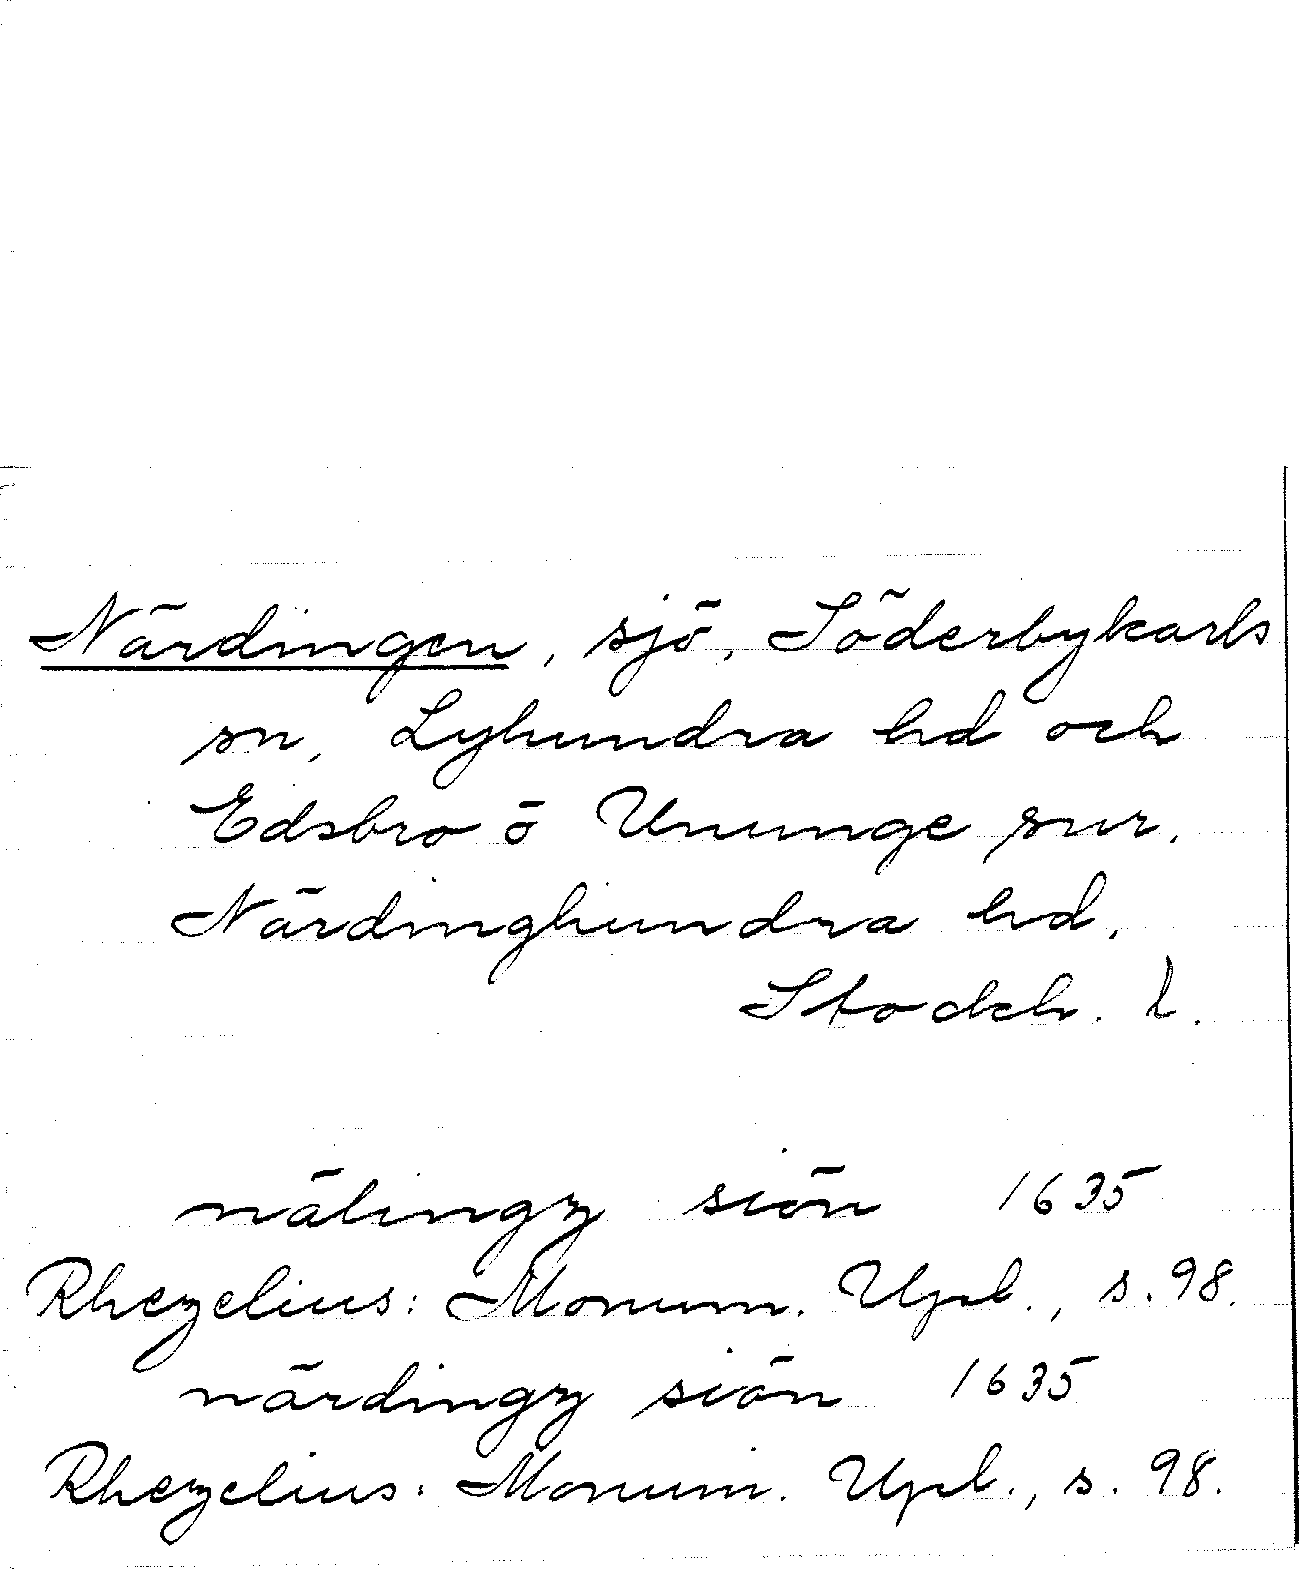 Närdingen, sjö, Söderbykarls
sn, Lyhundra hd och
Edsbro o Ununge snr,
Närdinghundra hd,
Stockh. l.
nälingz siön 1635
Rhezelius: Monum. Upl., s. 98.
närdingz siön 1635
Rhezelius: Monum. Upl., s. 98.